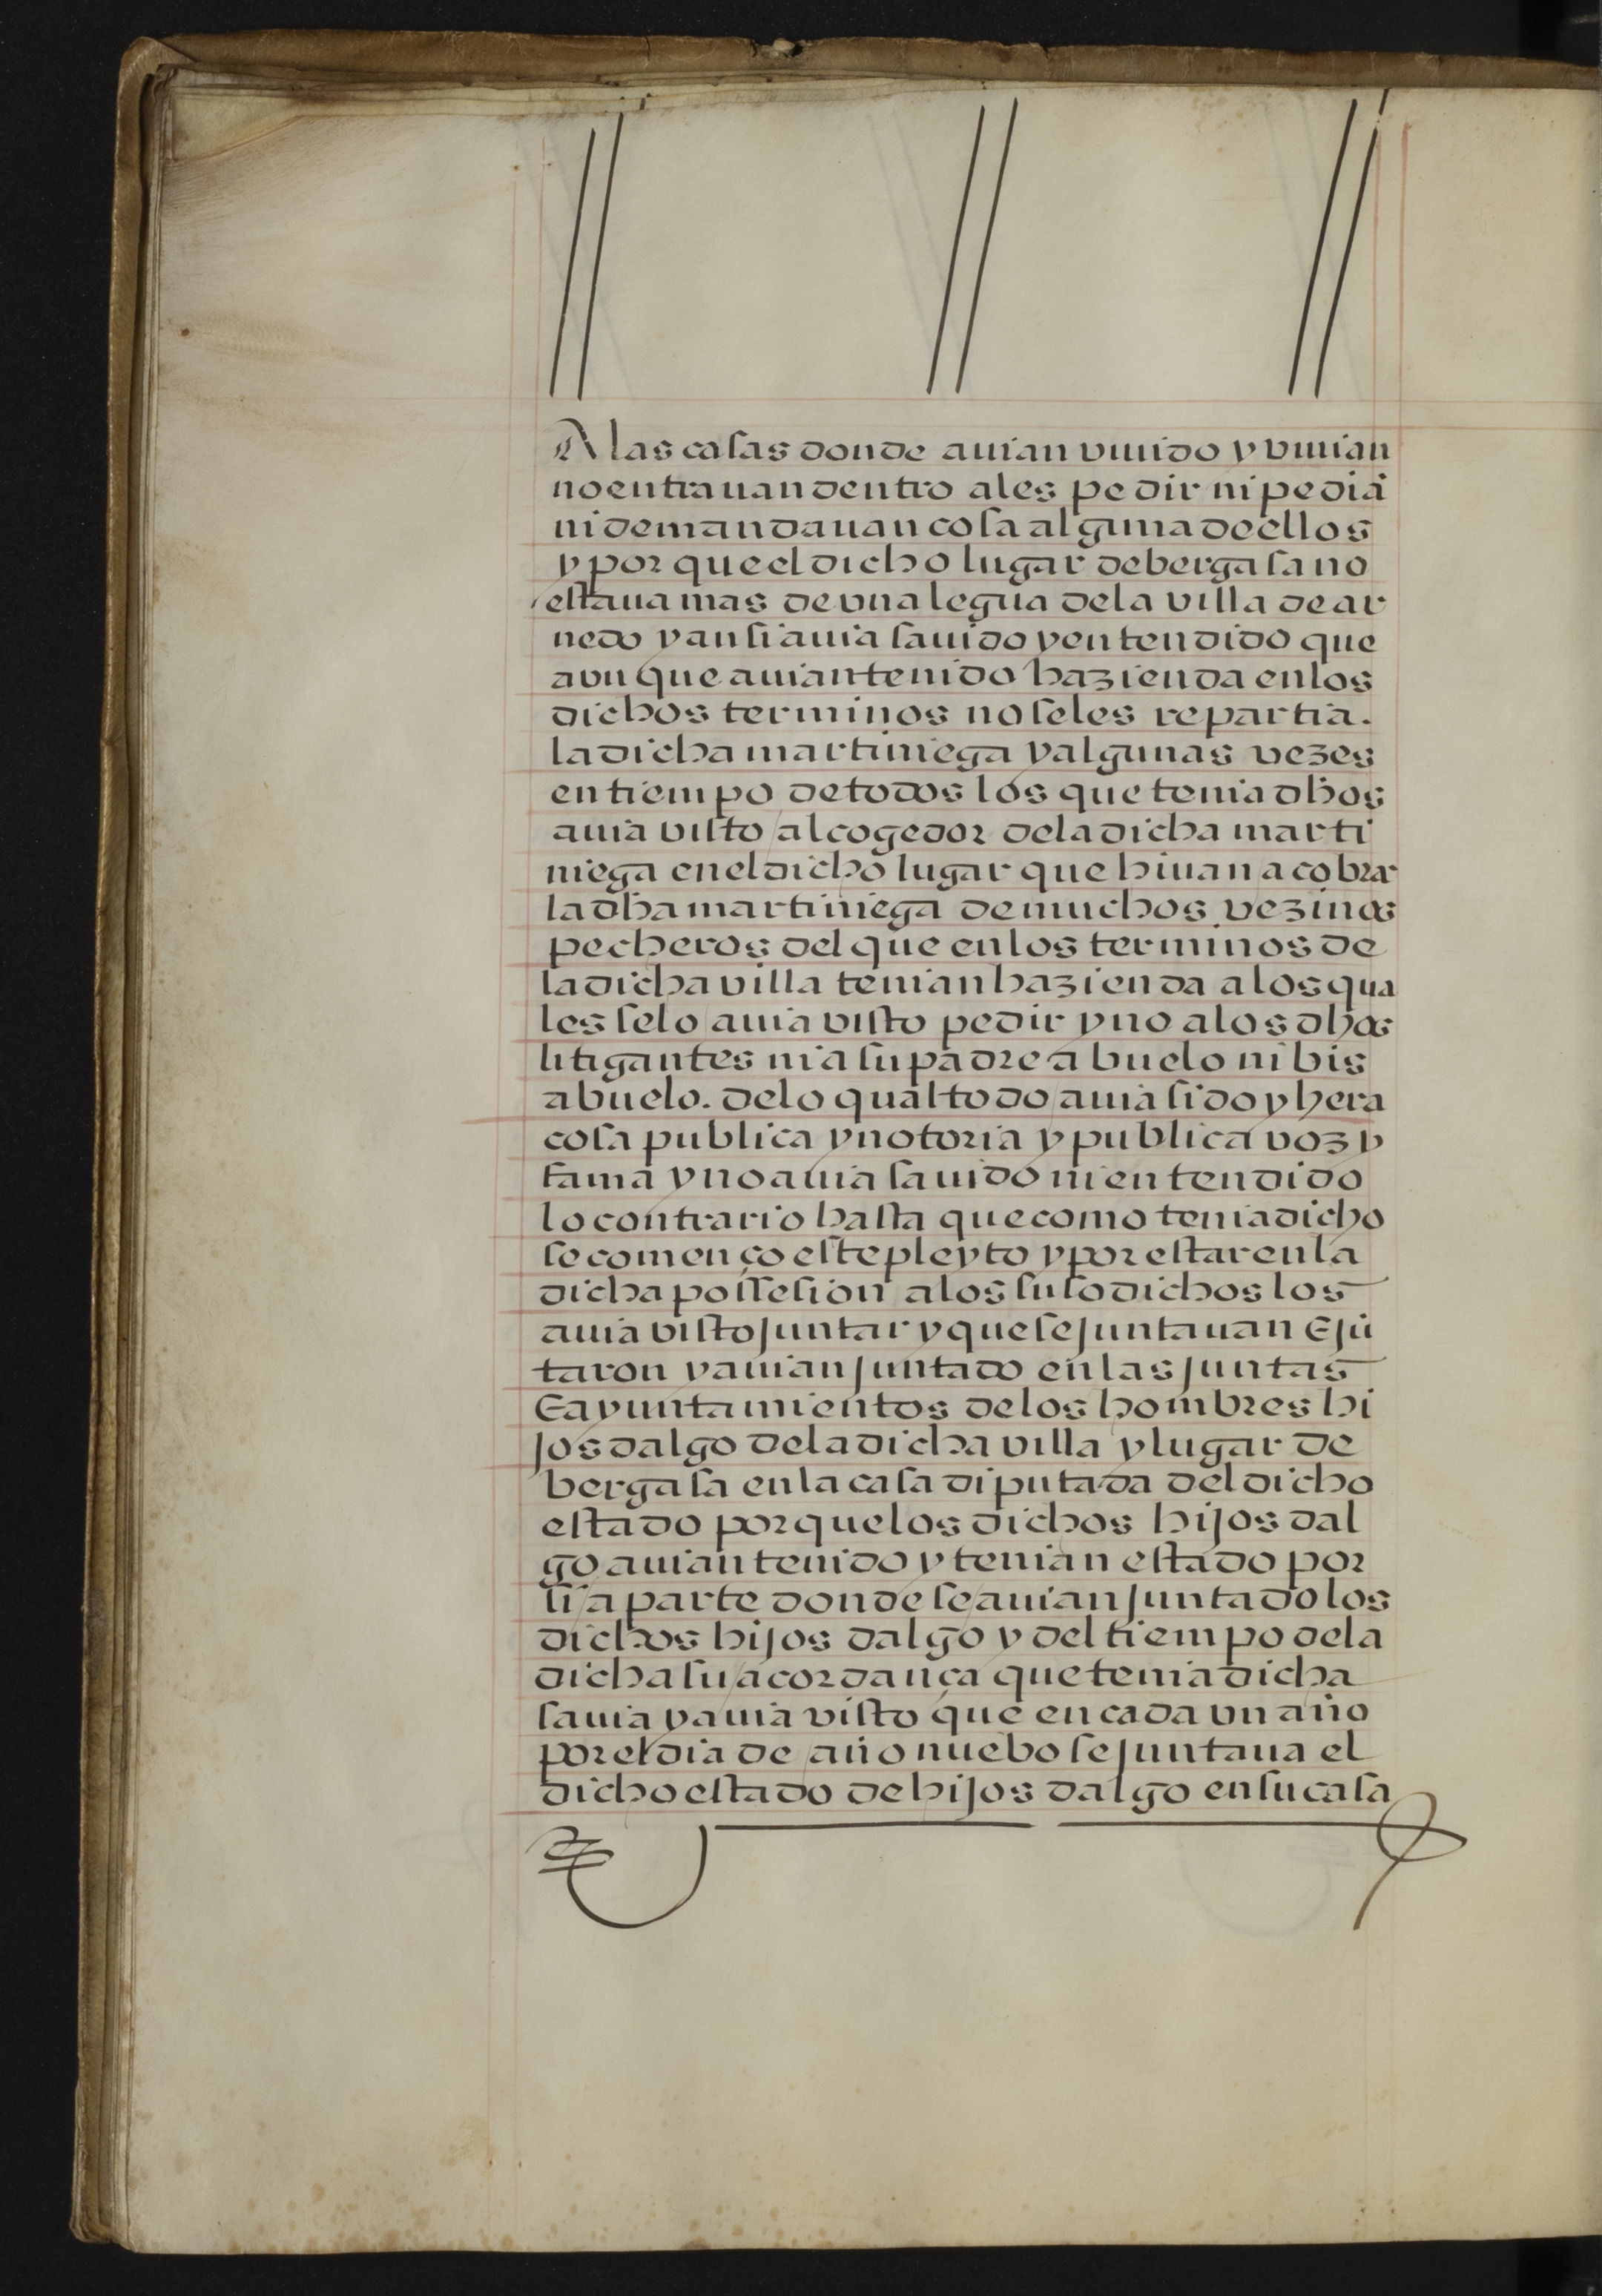 A las casas donde auian viuido y viuian
no entrauan dentro a les pedir ni pediā
ni demandauan cosa alguna de ellos
y por que el dicho lugar de bergasa no
estaua mas de vna legua de la villa de ar
nedo y ansi auia sauido y entendido que
avn que auian tenido hazienda en los
dichos terminos no se les repartia.
la dicha martiniega y algunas vezes
en tiempo de todos los que tenia dhos
auia visto al cogedor de la dicha marti
niega en el dicho lugar que hiuan a cobrar
la dha martiniega de muchos vezinos
pecheros del que en los terminos de
la dicha villa tenian hazienda a los qua
les se lo auia visto pedir y no a los dhos
litigantes ni a su padre abuelo ni bis
abuelo. de lo qual todo auia sido y hera
cosa publica y notoria y publica voz y
fama y no auia sauido ni entendido
lo contrario hasta que como tenia dicho
se començo este pleyto y por estar en la
dicha possesion a los suso dichos los
auia visto juntar y que se juntauan E jū
taron y auian juntado en las juntas
E ayuntamientos de los hombres hi
jos dalgo de la dicha villa y lugar de
bergasa en la casa diputada del dicho
estado por que los dichos hijos dal
go auian tenido y tenian estado por
si a parte donde se auian juntado los
dichos hijos dalgo y del tiempo de la
dicha su acordança que tenia dicha
sauia y auia visto que en cada vn año
por el dia de año nuebo se juntaua el
dicho estado de hijos dalgo en su casa